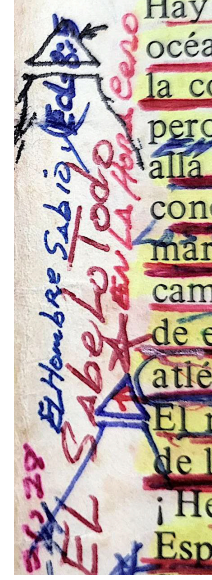 Hay
océa
la co
pero
allá
cono
mar
cam
de e
atlé
El
de l
¡He
Esp
EL Hombre Sabio
EL SabeLo Todo
EN LA HORA Cero
28